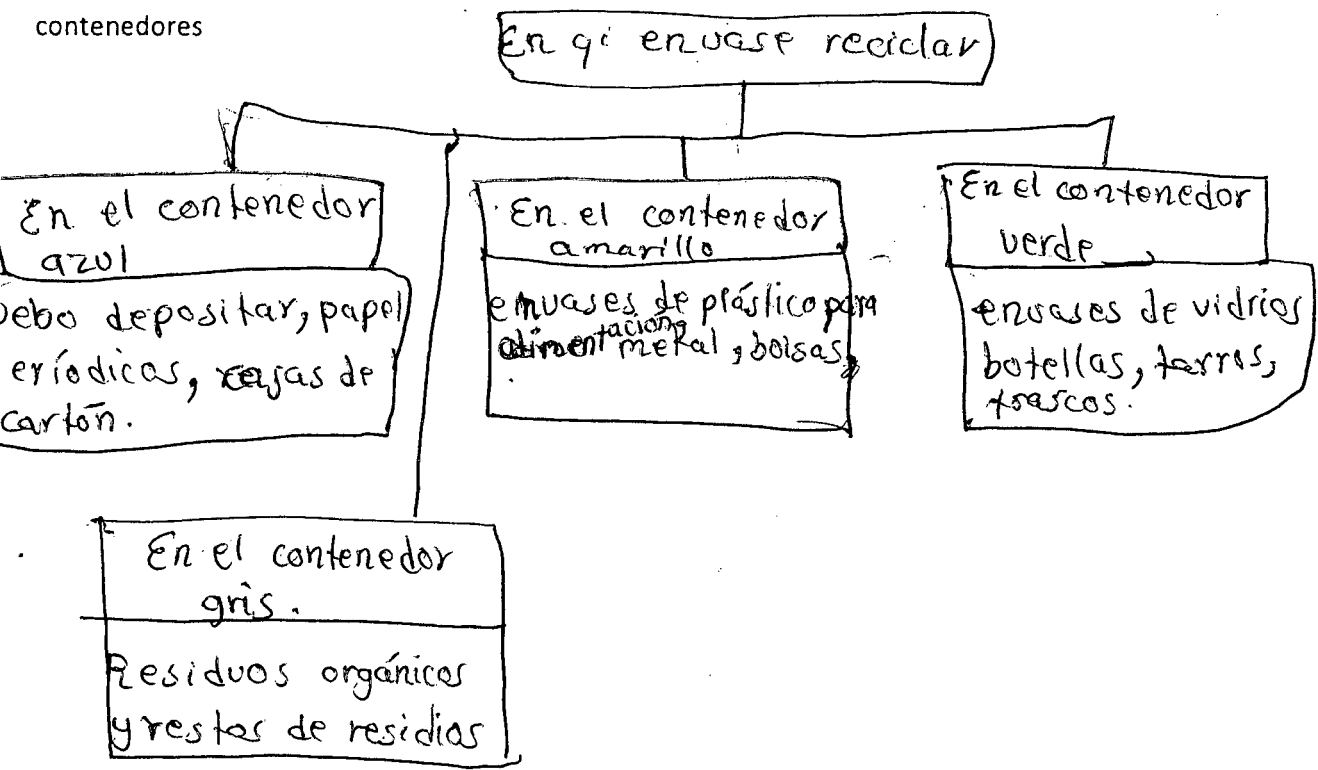 contenedores
En qi envase reciclar
En el contenedor
azul
Debo depositar, papel
eríodicos, cajas de
cartón.
En el contenedor
amarillo
envases de plástico para
alimentacion, metal, bolsas,
En el contenedor
verde
envases de vidrios
botellas, tarros,
frascos.
En el contenedor
gris.
Residuos orgánicos
y restos de residios